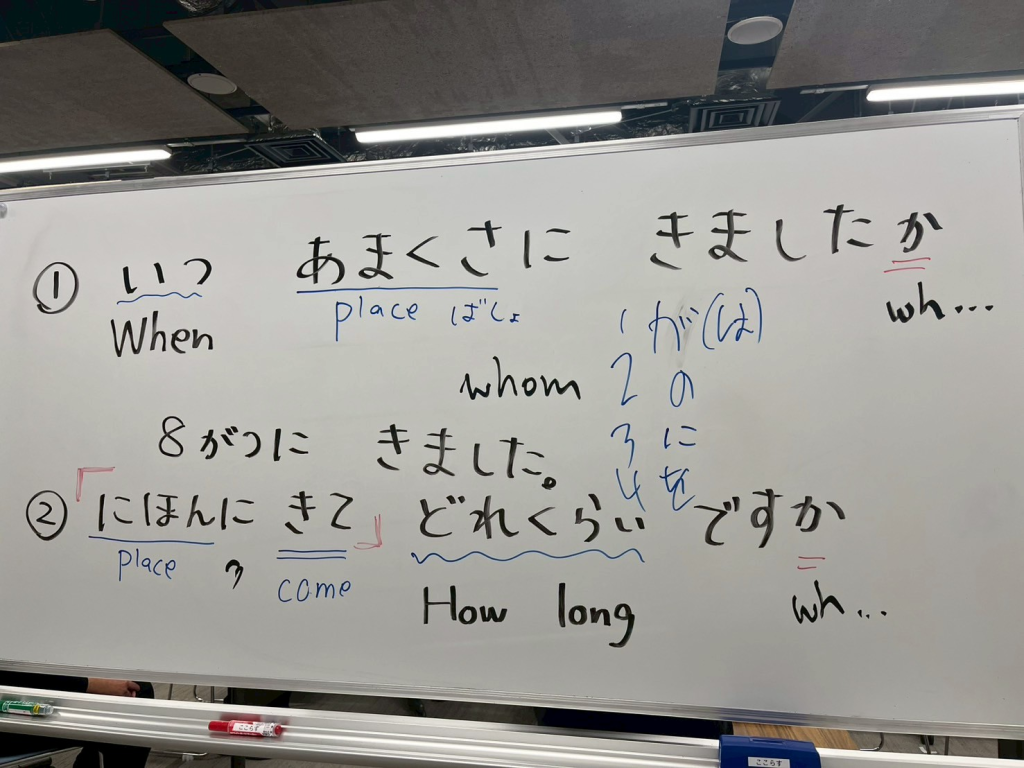 ① いつ あまくさに きましたか
When place ばしょ wh...
1 が(は)
whom 2 の
3 に
8がつに きました。
4 を
② 「にほんに きて」 どれくらい ですか
place , come How long wh...
こころす
こころす